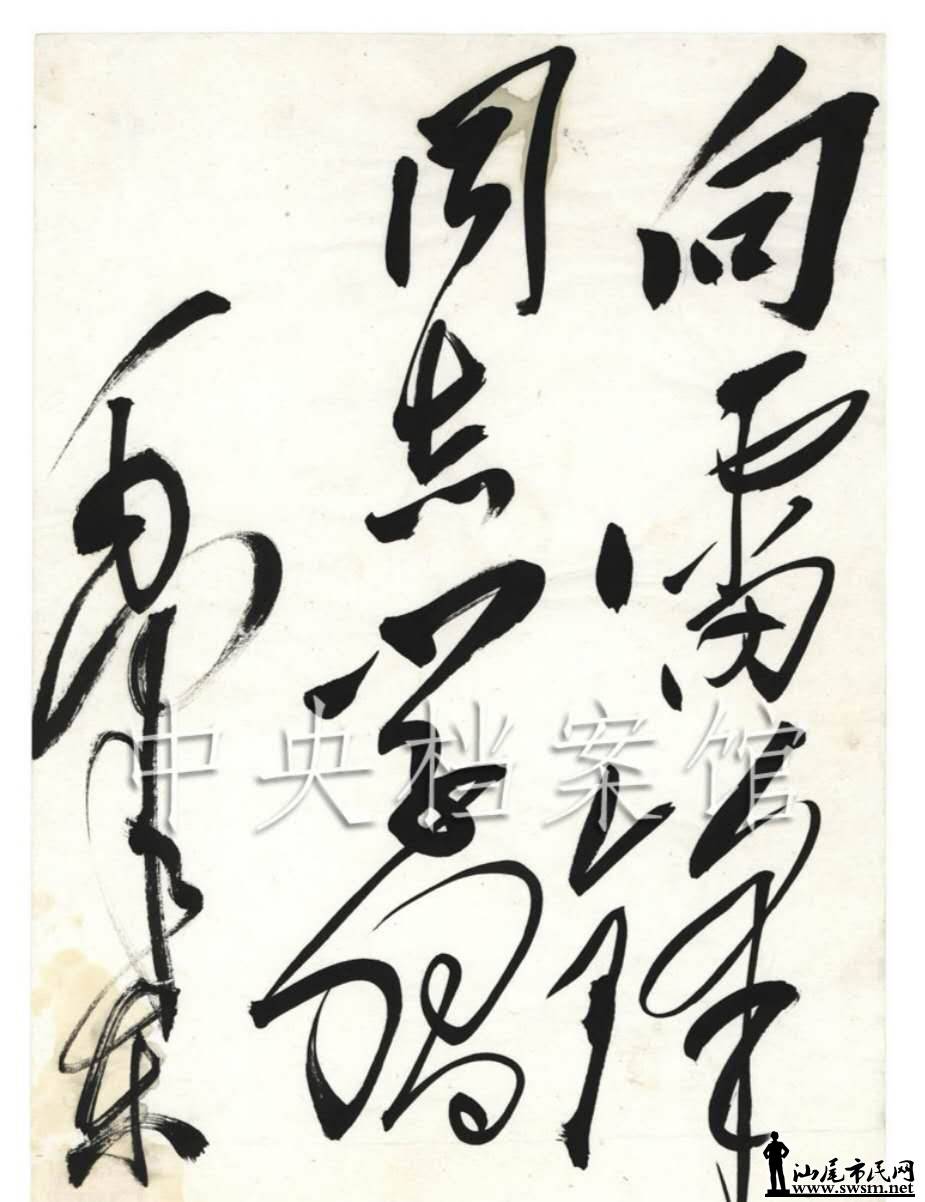 向雷锋
同志学习
毛泽东
中央档案馆
汕尾市民网
www.swsm.net